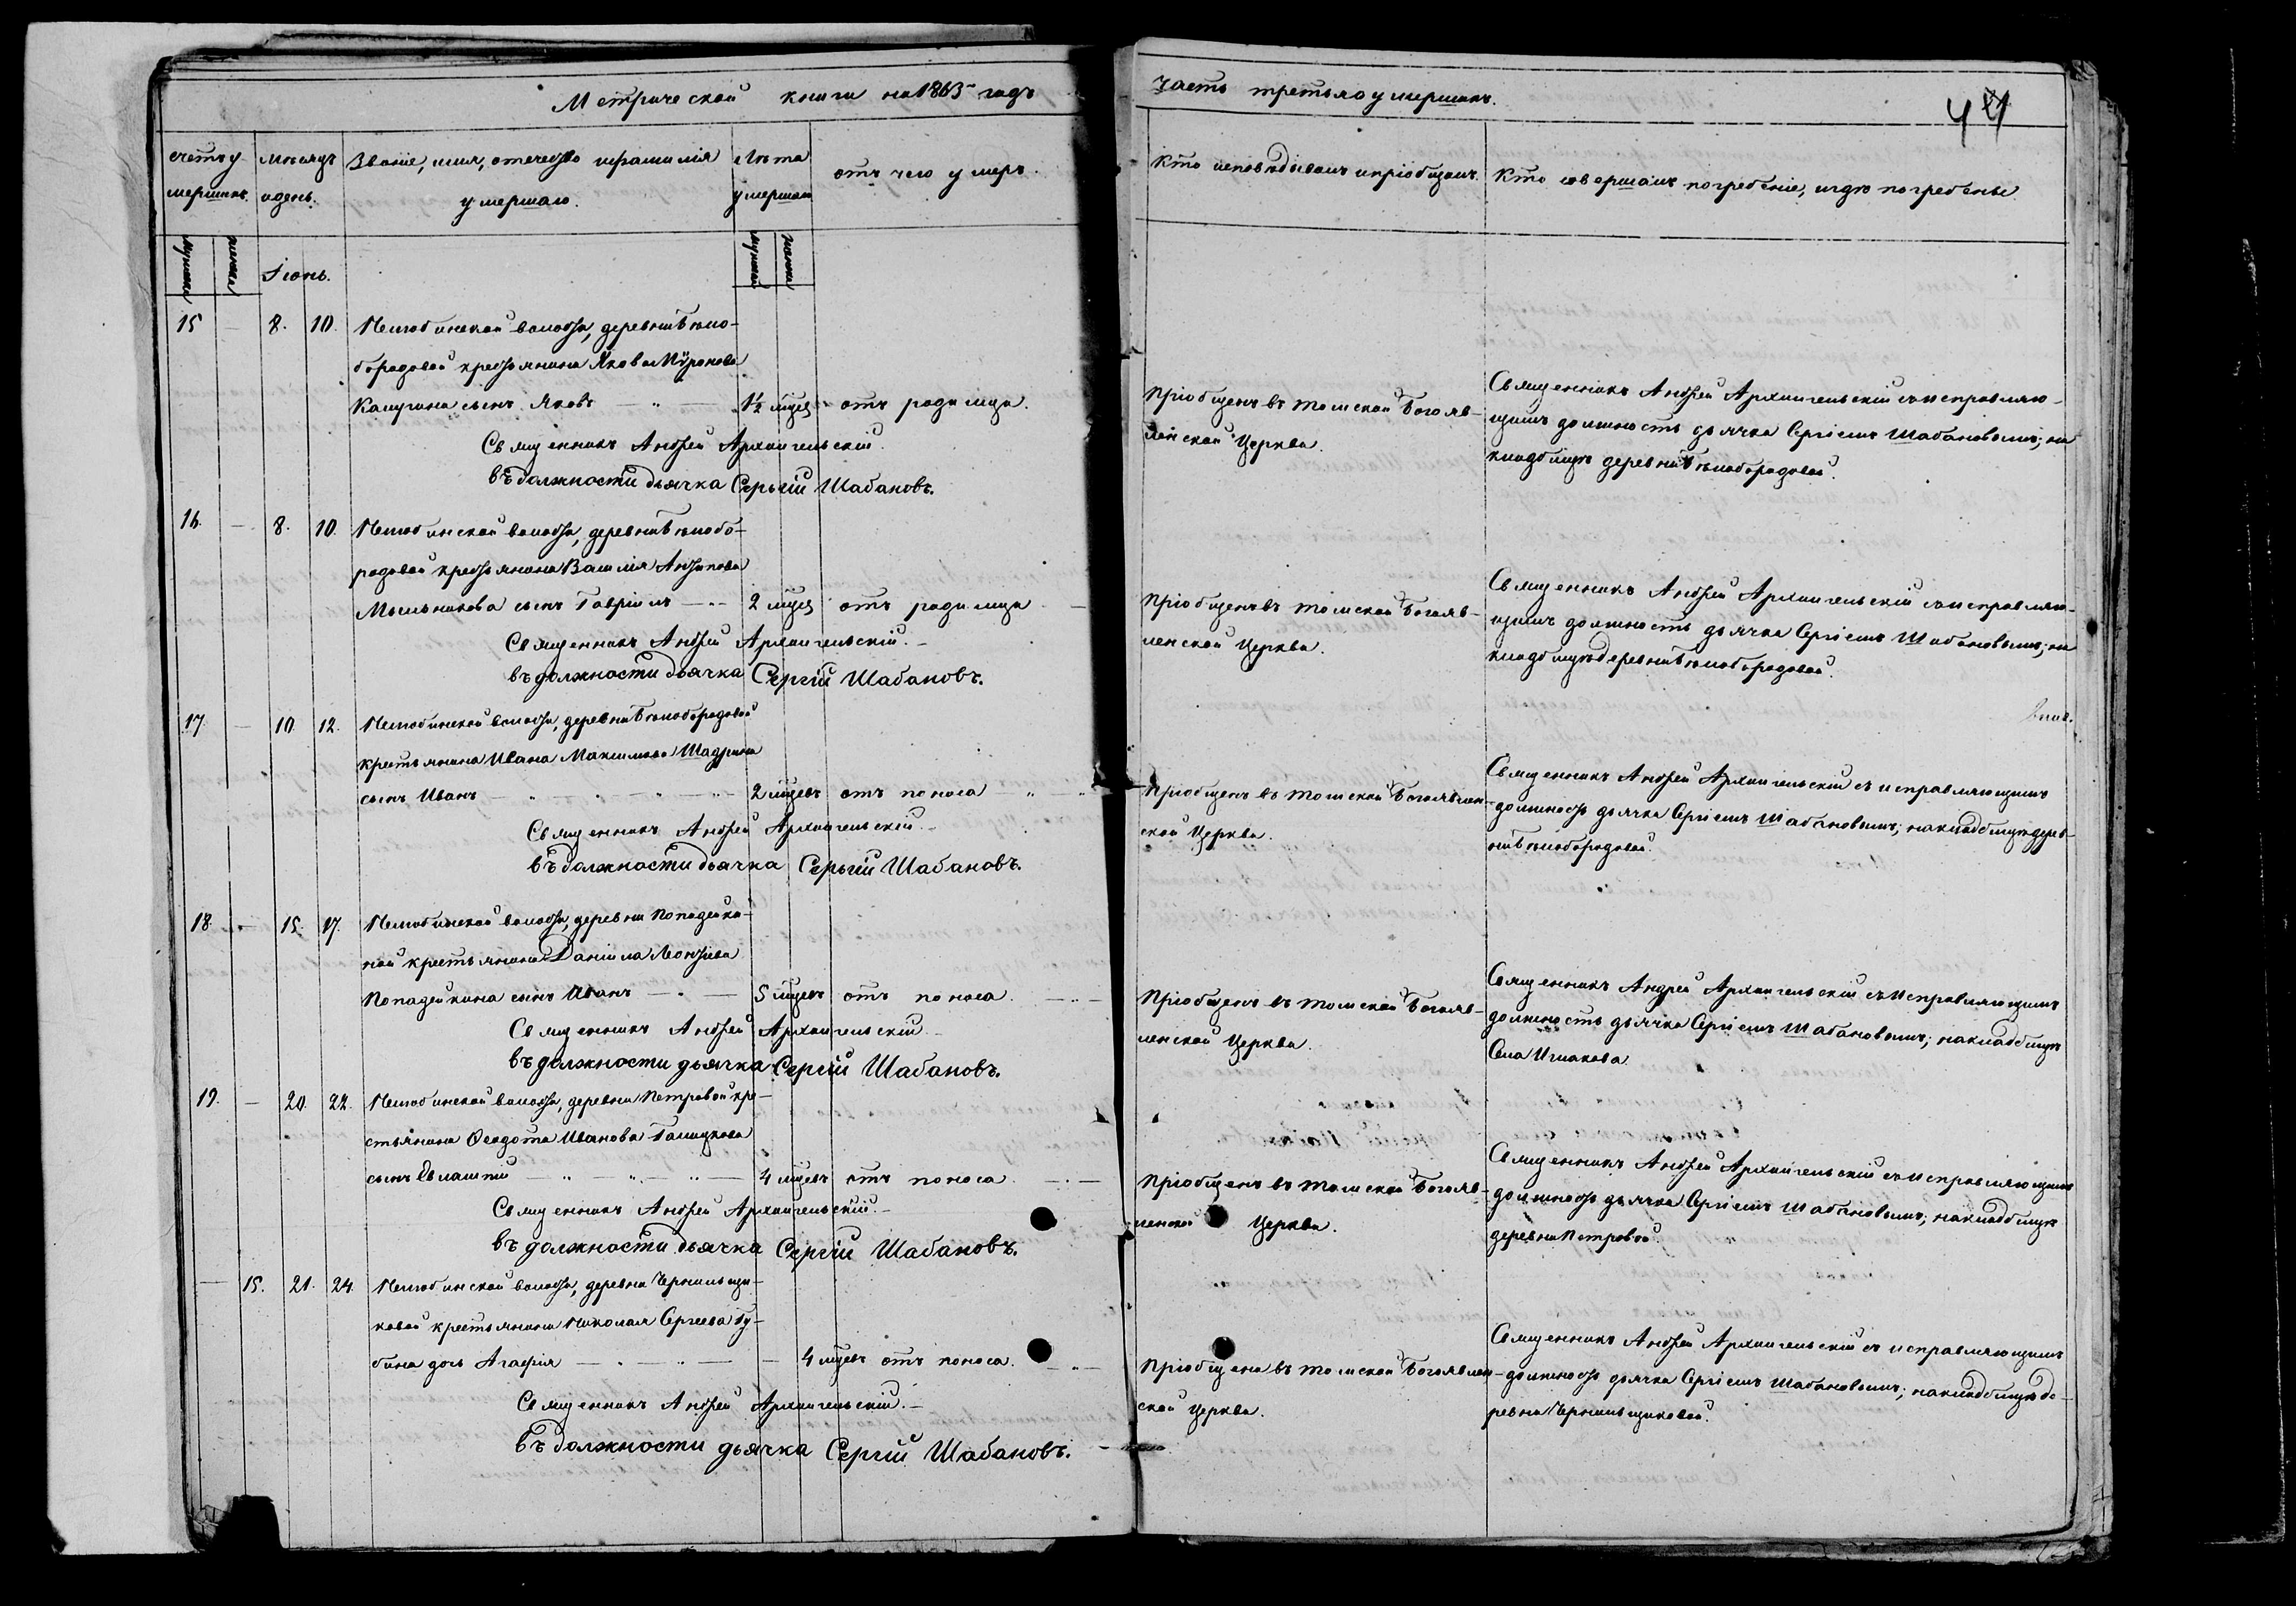 Метрической книги на 1865 годъ
часть третья о умершихъ.
счетъ у-
мершихъ.
мѣсяцъ
и день.
Званіе, имя, отечество и фамилія
умершаго.
лѣта
умершаго
отъ чего умеръ.
Кто исповѣдывалъ и пріобщалъ.
Кто совершалъ погребеніе, и гдѣ погребены
Іюнь.
15 — 8. 10. волости, деревни Бѣло-
бородовой крестьянина Якова Миронова
сынъ Яковъ — " — 1½ мѣсяц отъ родимца.
Священникъ Андрей Архангельскій.
въ должности дьячка Сергій Шабановъ.
Пріобщенъ въ томской Богояв-
ленской Церкви.
Священникъ Андрей Архангельскій съ исправляю-
щимъ должность дьячка Сергіемъ Шабановымъ; на
кладбищѣ деревни Бѣлобородовой.
16. — 8. 10. волости, деревни Бѣлобо-
родовой крестьянина Василія Антипова
Мыльникова сынъ Гавріилъ — 2 мѣсяц отъ родимца —
Священникъ Андрей Архангельскій. —
въ должности дьячка Сергій Шабановъ.
Пріобщенъ въ томской Богояв-
ленской Церкви.
Священникъ Андрей Архангельскій съ исправляю-
щимъ должность дьячка Сергіемъ Шабановымъ; на
кладбищѣ деревни Бѣлобородовой.
17. — 10. 12. волости, деревни Бѣлобородовой
крестьянина Ивана Максимова Шадрина
сынъ Иванъ — " — " — 2 мѣсцевъ отъ поноса " — "
Священникъ Андрей Архангельскій. —
въ должности дьячка Сергій Шабановъ.
Пріобщенъ въ томской Богоявлен-
ской Церкви.
Священникъ Андрей Архангельскій съ исправляющимъ
должность дьячка Сергіемъ Шабановымъ; на кладбищѣ дерев-
ни Бѣлобородовой.
18. — 15. 17. волости, деревни Попадейки-
ной крестьянина Даніила Леонтіева
Попадейкина сынъ Иванъ — " — 5 мѣсцевъ отъ поноса. —
Священникъ Андрей Архангельскій —
въ должности дьячка Сергій Шабановъ.
Пріобщенъ въ томской Богояв-
ленской Церкви.
Священникъ Андрей Архангельскій съ исправляющимъ
должность дьячка Сергіемъ Шабановымъ; на кладбищѣ
Села
19. — 20. 22. волости, деревни Петровой кре-
стьянина Ѳеодота Иванова
сынъ Евлампій — " — " — 4 мѣсцевъ отъ поноса. —
Священникъ Андрей Архангельскій. —
въ должности дьячка Сергій Шабановъ.
Пріобщенъ въ томской Богояв-
ленской Церкви.
Священникъ Андрей Архангельскій съ исправляющимъ
должность дьячка Сергіемъ Шабановымъ; на кладбищѣ
деревни Петровой.
— 15. 21. 24. волости, деревни Чернильщи-
ковой крестьянина Николая Сергеева Гу-
бина дочь Агафія — " — 4 мѣсцевъ отъ поноса. —
Священникъ Андрей Архангельскій. —
въ должности дьячка Сергій Шабановъ.
Пріобщена въ томской Богоявлен-
ской Церкви.
Священникъ Андрей Архангельскій съ исправляющимъ
должность дьячка Сергіемъ Шабановымъ; на кладбищѣ де-
ревни Чернильщиковой.